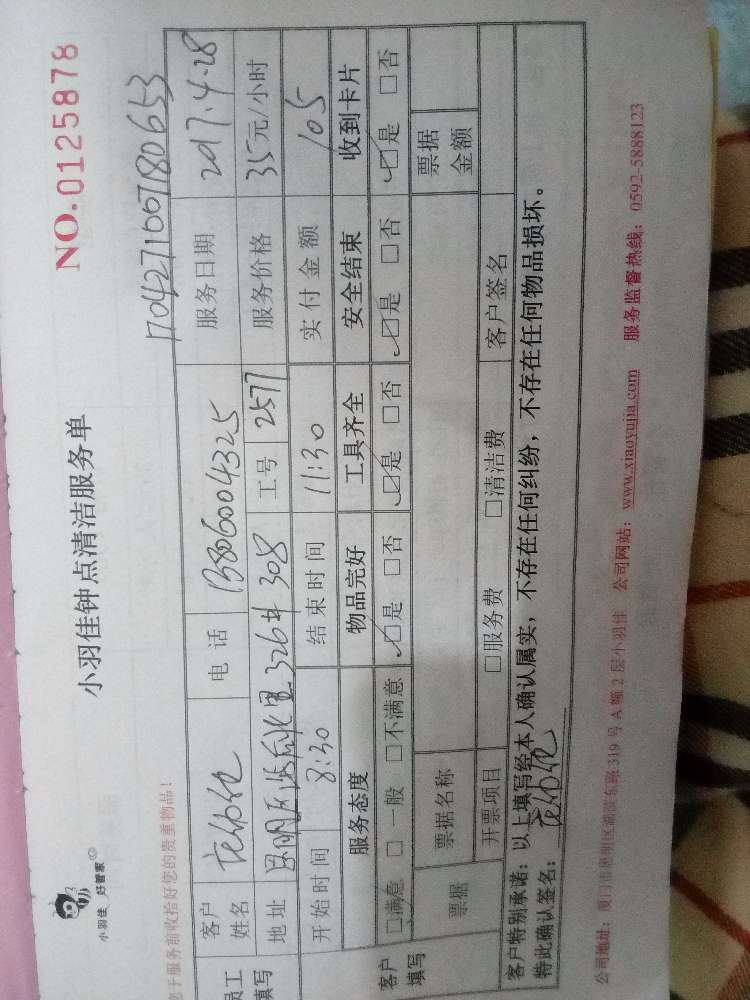 小羽佳 好管家
小羽佳钟点清洁服务单
NO.0125878
于服务前收拾好您的贵重物品！
170427100780653
员工填写
客户姓名
电话 13806004325
服务日期 2017.4.28
地址 326# 308
工号 2577
服务价格 35元/小时
开始时间 8:30
结束时间 11:30
实付金额 105
客户填写
服务态度 物品完好 工具齐全 安全结束 收到卡片
□满意 □一般 □不满意 □是 □否 □是 □否 □是 □否 □是 □否
票据 票据名称 票据金额
开票项目 □服务费 □清洁费 客户签名
客户特别承诺：以上填写经本人确认属实，不存在任何纠纷，不存在任何物品损坏。
特此确认签名：
公司地址：厦门市思明区 东路319号A幢2层小羽佳 公司网站：www.xiaoyujia.com 服务监督热线：0592-5888123